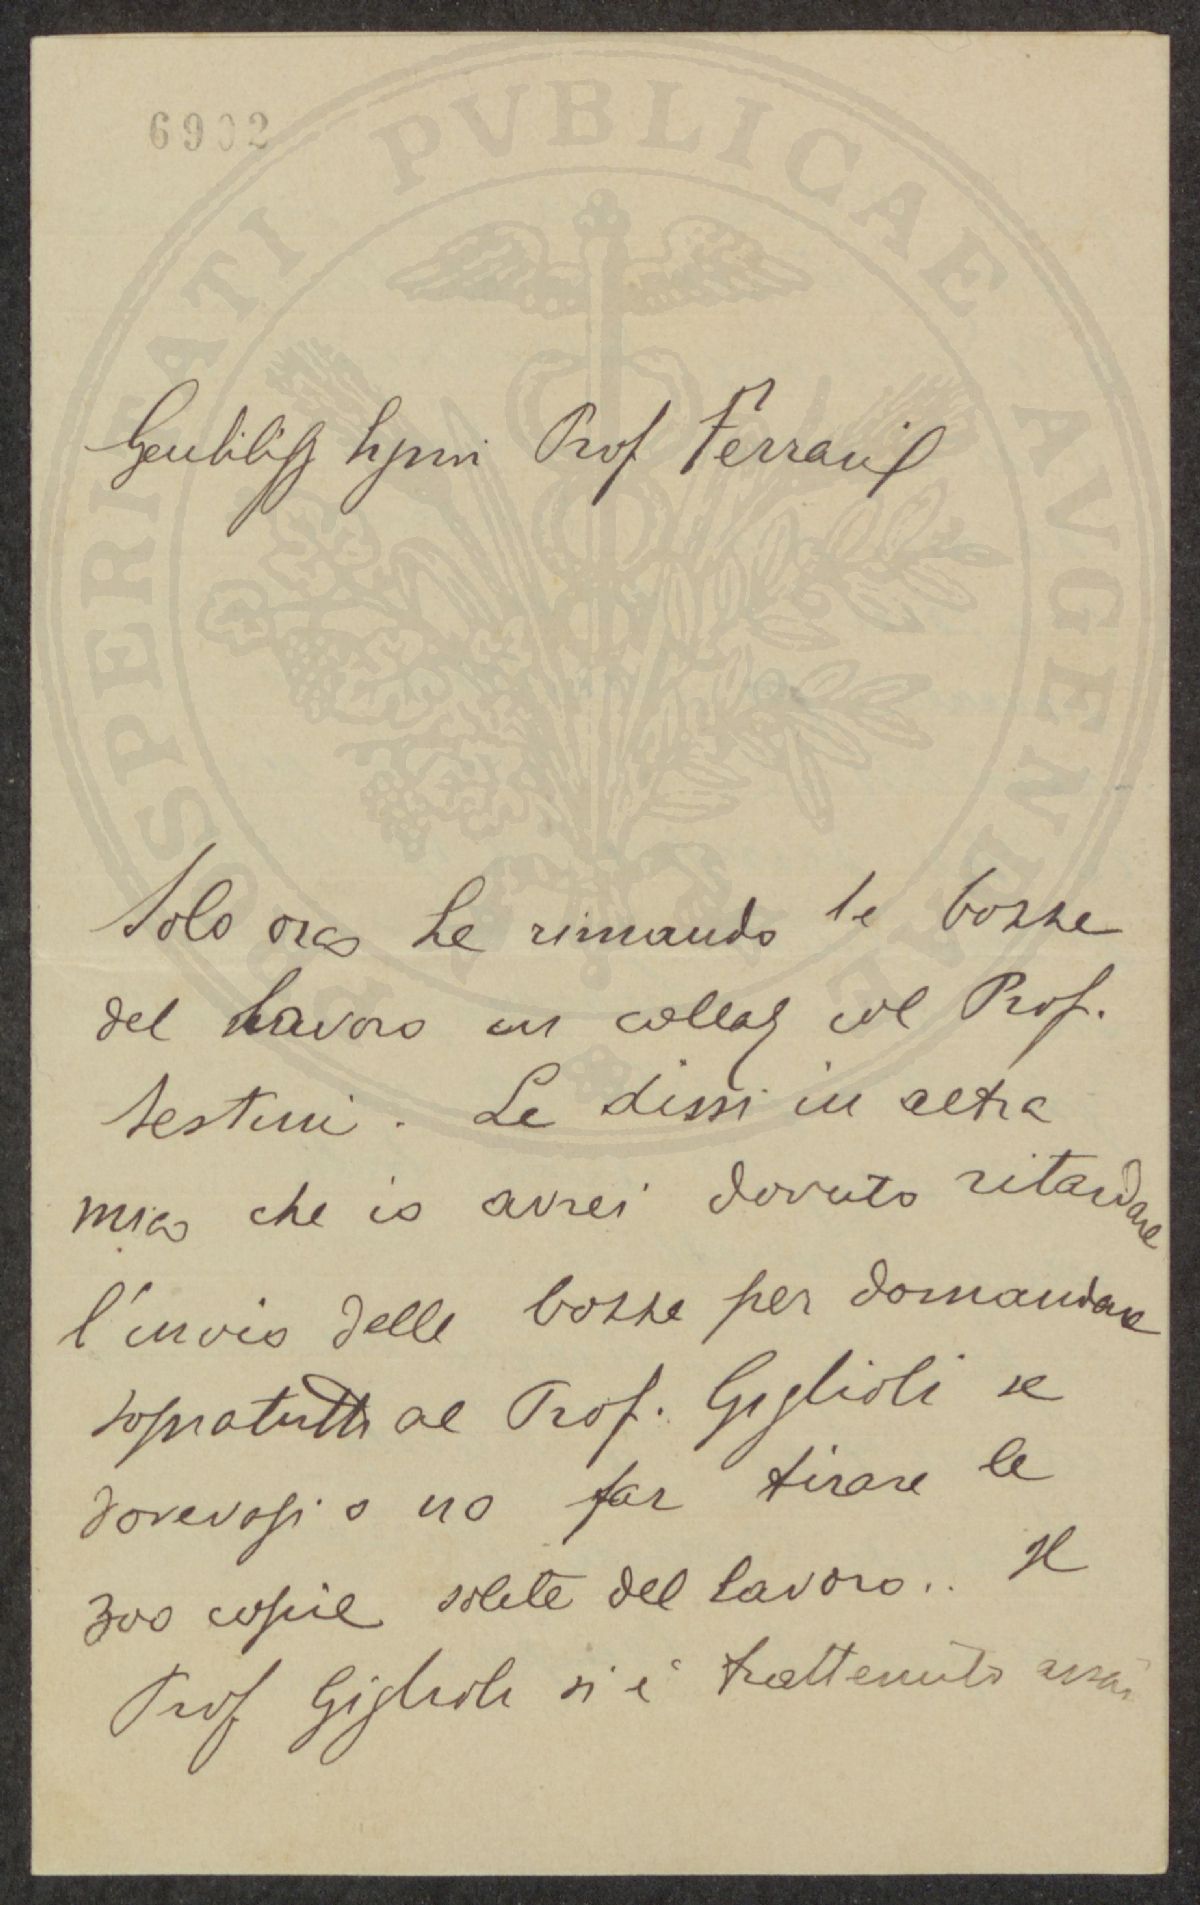 6902
PROSPERITATI PVBLICAE AVGENDAE
Gentiliss Signor Prof Ferraris
Solo ora Le rimando le bozze
del lavoro in collaz col Prof.
Sestini. Le dissi in altra
mia che io avrei dovuto ritardare
l'invio delle bozze per domandare
sopratutto al Prof. Giglioli se
dovevasi o no far tirare le
300 copie solite del lavoro.. Il
Prof Giglioli si è trattenuto assai